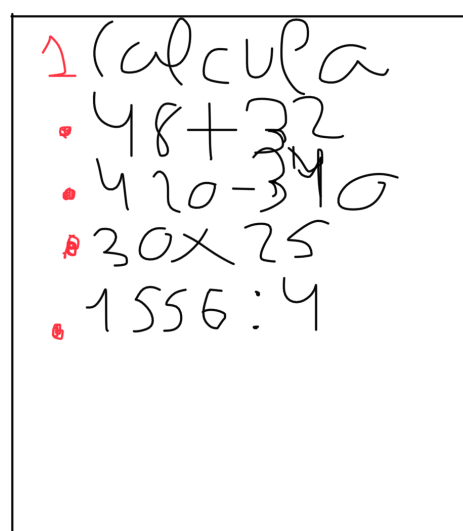 1 Calcula
• 48+32
• 420-340
• 30x25
• 1556:4